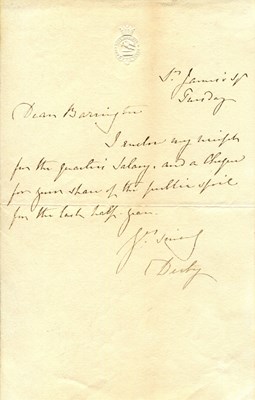 St. James's Sq
Tuesday
Dear Barrington
I enclose my receipt
for the quarter's Salary, and a Cheque
for your share of the public spoil
for the last half year.
Yrs sincerely
Derby